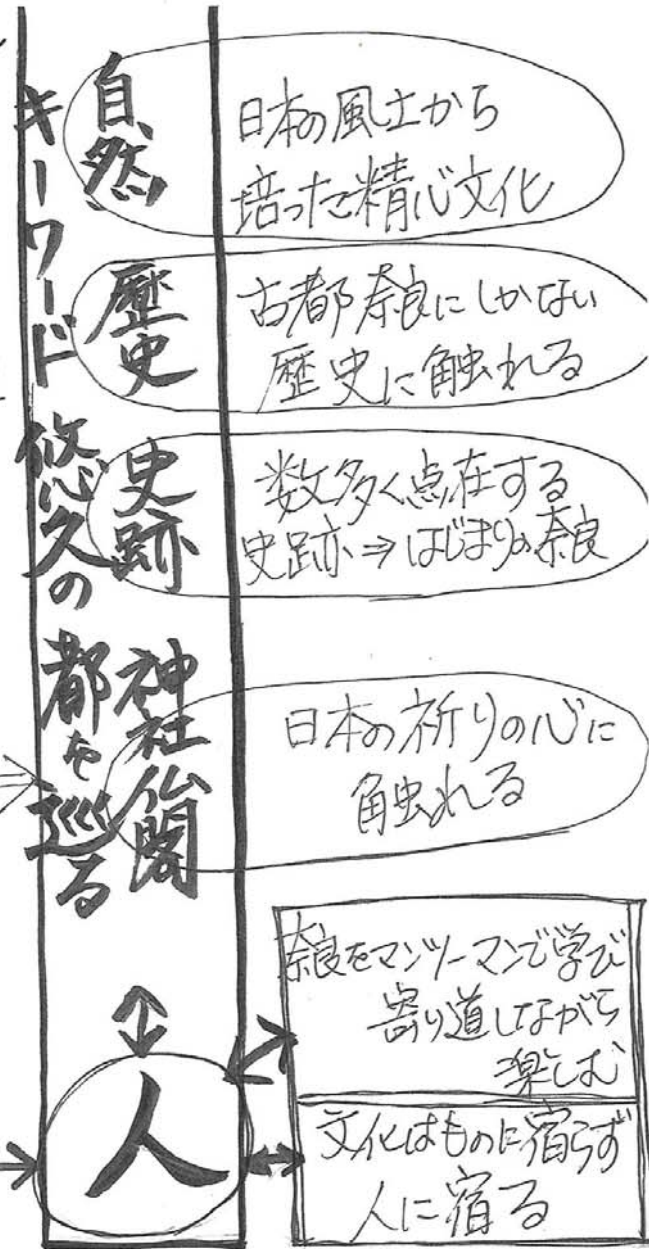 キーワード 悠久の都を巡る
自然
日本の風土から
培った精心文化
歴史
古都奈良にしかない
歴史に触れる
史跡
数多く点在する
史跡⇒はじまりの奈良
神社仏閣
日本の祈りの心に
触れる
人
奈良をマンツーマンで学び
寄り道しながら
楽しむ
文化はものに宿らず
人に宿る